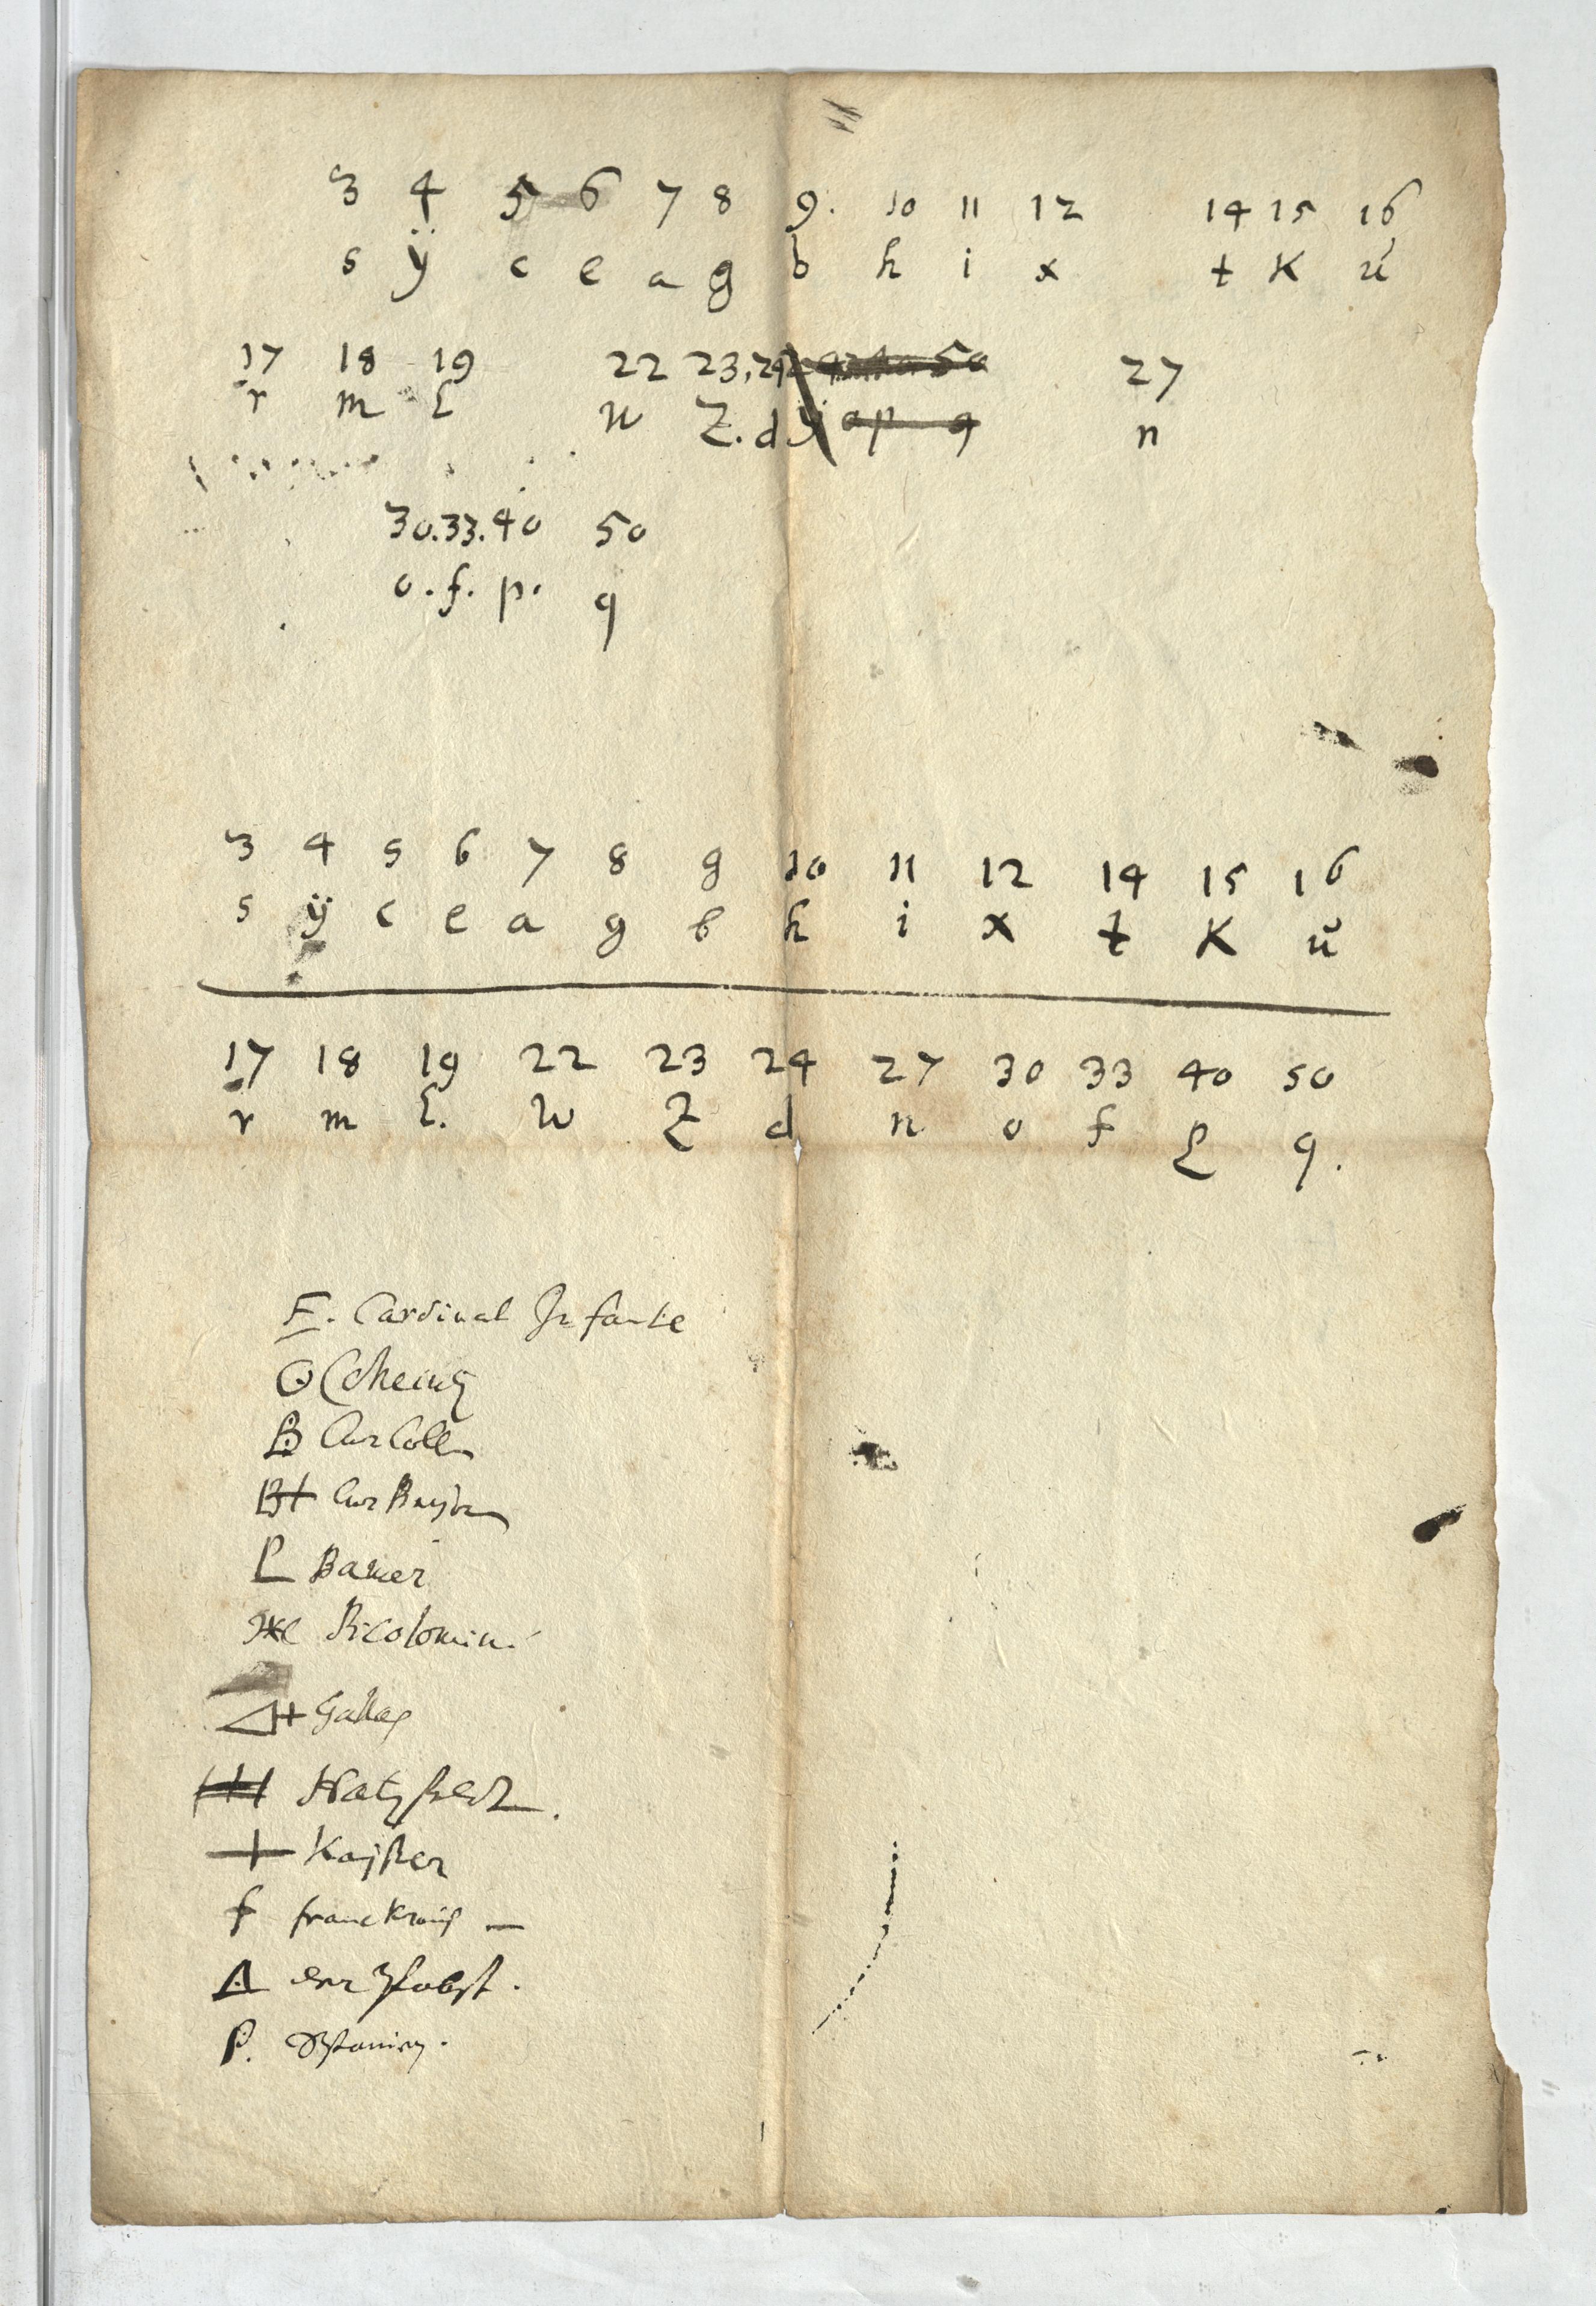 3 4 5 6 7 8 9. 10 11 12 14 15 16
s ÿ c e a g b h i x t K ú
17 18 19 22 23. 24 50 27
r m l w Z. d ÿ o p q n
30. 33. 40 50
o. f. p. q
3 4 5 6 7 8 9 10 11 12 14 15 16
s ÿ c e a g b h i x t K ŭ
17 18 19 22 23 24 27 30 33 40 50
r m l. w Z d n o f p q.
F. Cardinal Infante
B Cur Colln
B+ Cur Bayrn
Baner
Picolomini
Gallas
Hatzfeldt.
+ Kayser
f franckreich
A der Pabst.
P. Spanien.